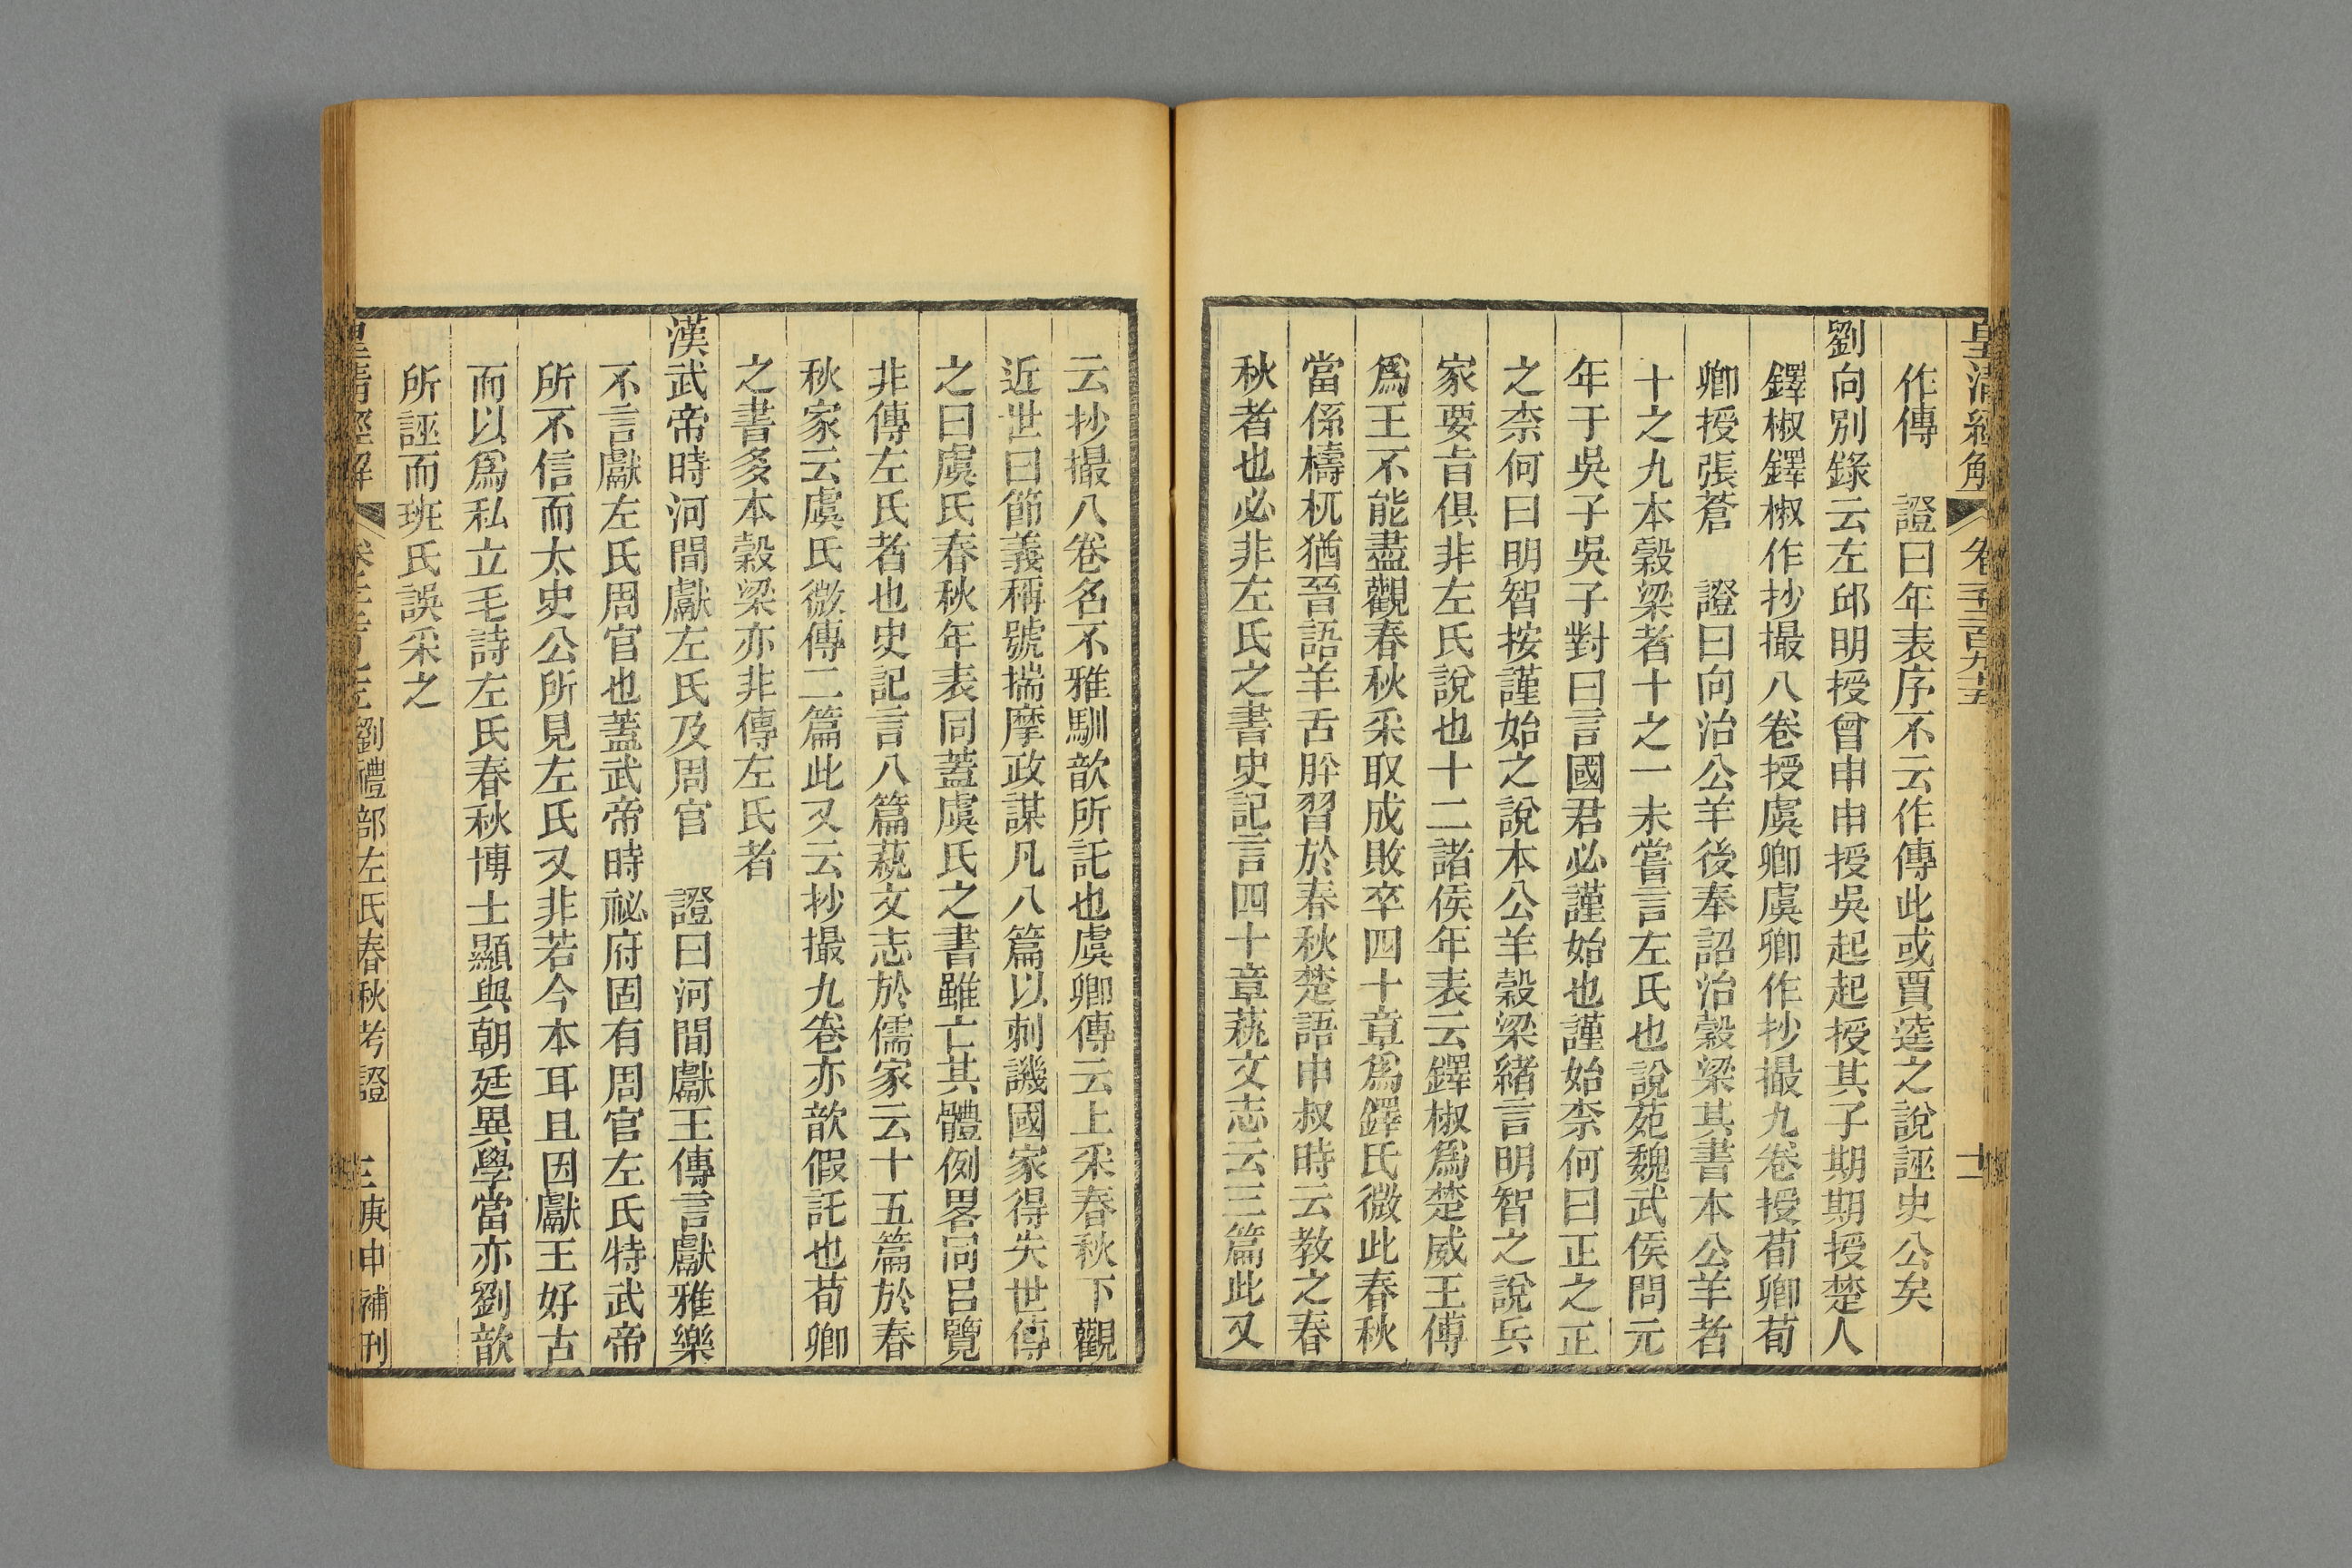 皇清經解 卷千二百九十五 十一
作傳 證曰年表序不云作傳此或賈逵之說誣史公矣
劉向別錄云左邱明授曾申申授吳起起授其子期期授楚人
鐸椒鐸椒作抄撮八卷授虞卿虞卿作抄撮九卷授荀卿荀
卿授張蒼 證曰向治公羊後奉詔治穀梁其書本公羊者
十之九本穀梁者十之一未嘗言左氏也說苑魏武侯問元
年于吳子吳子對曰言國君必謹始也謹始柰何曰正之正
之柰何曰明智按謹始之說本公羊穀梁緒言明智之說兵
家要旨俱非左氏說也十二諸侯年表云鐸椒爲楚威王傅
爲王不能盡觀春秋采取成敗卒四十章爲鐸氏微此春秋
當係檮杌猶晉語羊舌肸習於春秋楚語申叔時云教之春
秋者也必非左氏之書史記言四十章蓺文志云三篇此又
云抄撮八卷名不雅馴歆所託也虞卿傳云上采春秋下觀
近世曰節義稱號揣摩政謀凡八篇以刺譏國家得失世傳
之曰虞氏春秋年表同蓋虞氏之書雖亡其體例畧同呂覽
非傳左氏者也史記言八篇蓺文志於儒家云十五篇於春
秋家云虞氏微傳二篇此又云抄撮九卷亦歆假託也荀卿
之書多本穀梁亦非傳左氏者
漢武帝時河間獻左氏及周官 證曰河間獻王傳言獻雅樂
不言獻左氏周官也蓋武帝時祕府固有周官左氏特武帝
所不信而太史公所見左氏又非若今本耳且因獻王好古
而以爲私立毛詩左氏春秋博士顯與朝廷異學當亦劉歆
所誣而班氏誤采之
皇清經解 劉禮部左氏春秋考證 庚申補刊